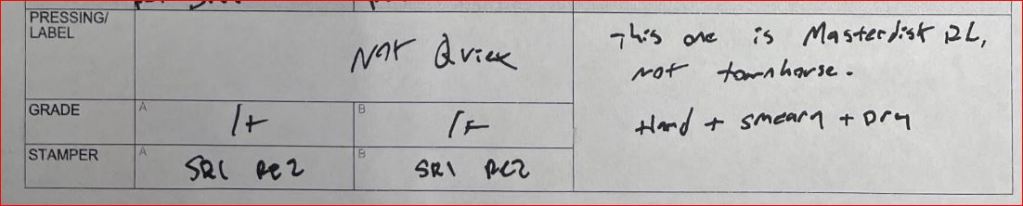 PRESSING/
LABEL
Not Quiex
This one is Masterdisk RL,
not townhouse.
GRADE
A
1+
B
1+
Hard + smeary + Dry
STAMPER
A
SR1 RE2
B
SR1 RE2